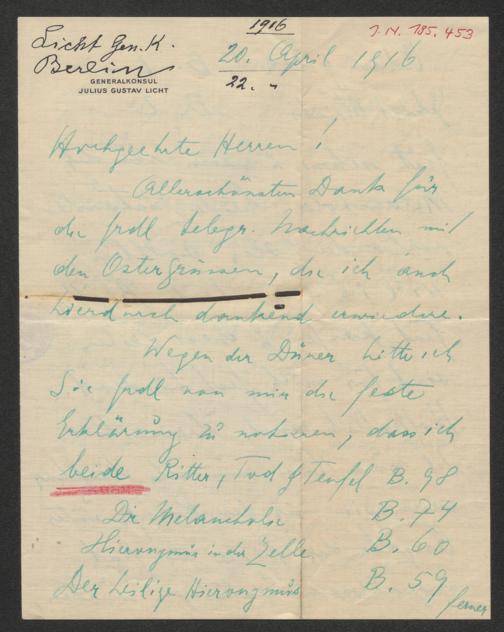 1916
J.N. 185.453
Licht Gen. K.
Berlin
GENERALKONSUL
JULIUS GUSTAV LICHT
20. April 1916
22. "
Hochgeehrte Herren!
Allerschönsten Dank für
die frdll telegr. Nachrichten mit
den Ostergrüssen, die ich auch
hierdurch dankend erwiedere.
Wegen der Dürer bitte ich
Sie frdll von mir die feste
Erklärung zu notieren, dass ich
beide Ritter, Tod & Teufel B. 98
Die Melancholie B. 74
Hieronymus in der Zelle B. 60
Der heilige Hieronymus B. 59
ferner